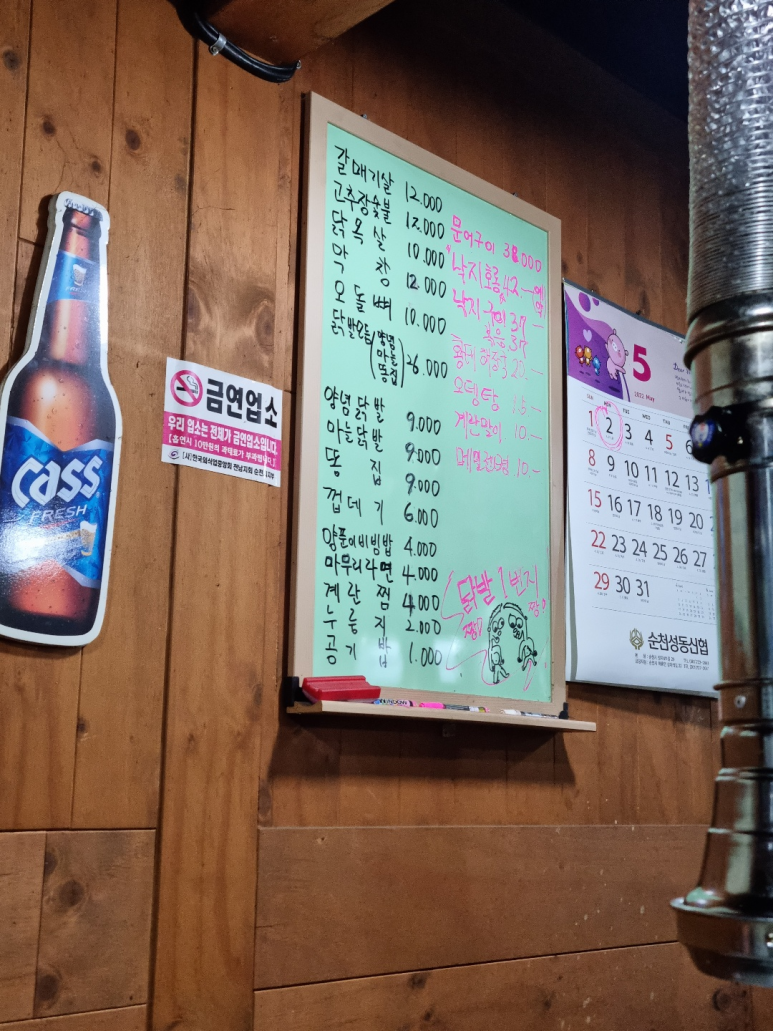 갈매기살 12.000
고추장숯불 12.000
닭목살 10.000
막창 12.000
오돌뼈 10.000
닭발모듬(양념 마늘 똥집) 26.000
양념닭발 9.000
마늘닭발 9.000
똥집 9.000
껍데기 6.000
양푼이비빔밥 4.000
마무리라면 4.000
계란찜 4.000
누룽지 2.000
공기밥 1.000
문어구이 38000
낙지호롱 42.-예약
낙지구이 37.-
볶음 37
20.-
오뎅탕 15.-
계란말이 10.-
10.-
닭발 1번지
짱!
짱!
Cass
FRESH
금연업소
우리 업소는 전체가 금연업소입니다.
【흡연시 10만원의 과태료가 부과됩니다.】
(사)한국외식업중앙회 전남지회 순천시지부
5
2022 May
SUN MON TUE WED THU FRI
1 2 3 4 5 6
8 9 10 11 12 13
15 16 17 18 19 20
22 23 24 25 26 27
29 30 31
순천성동신협